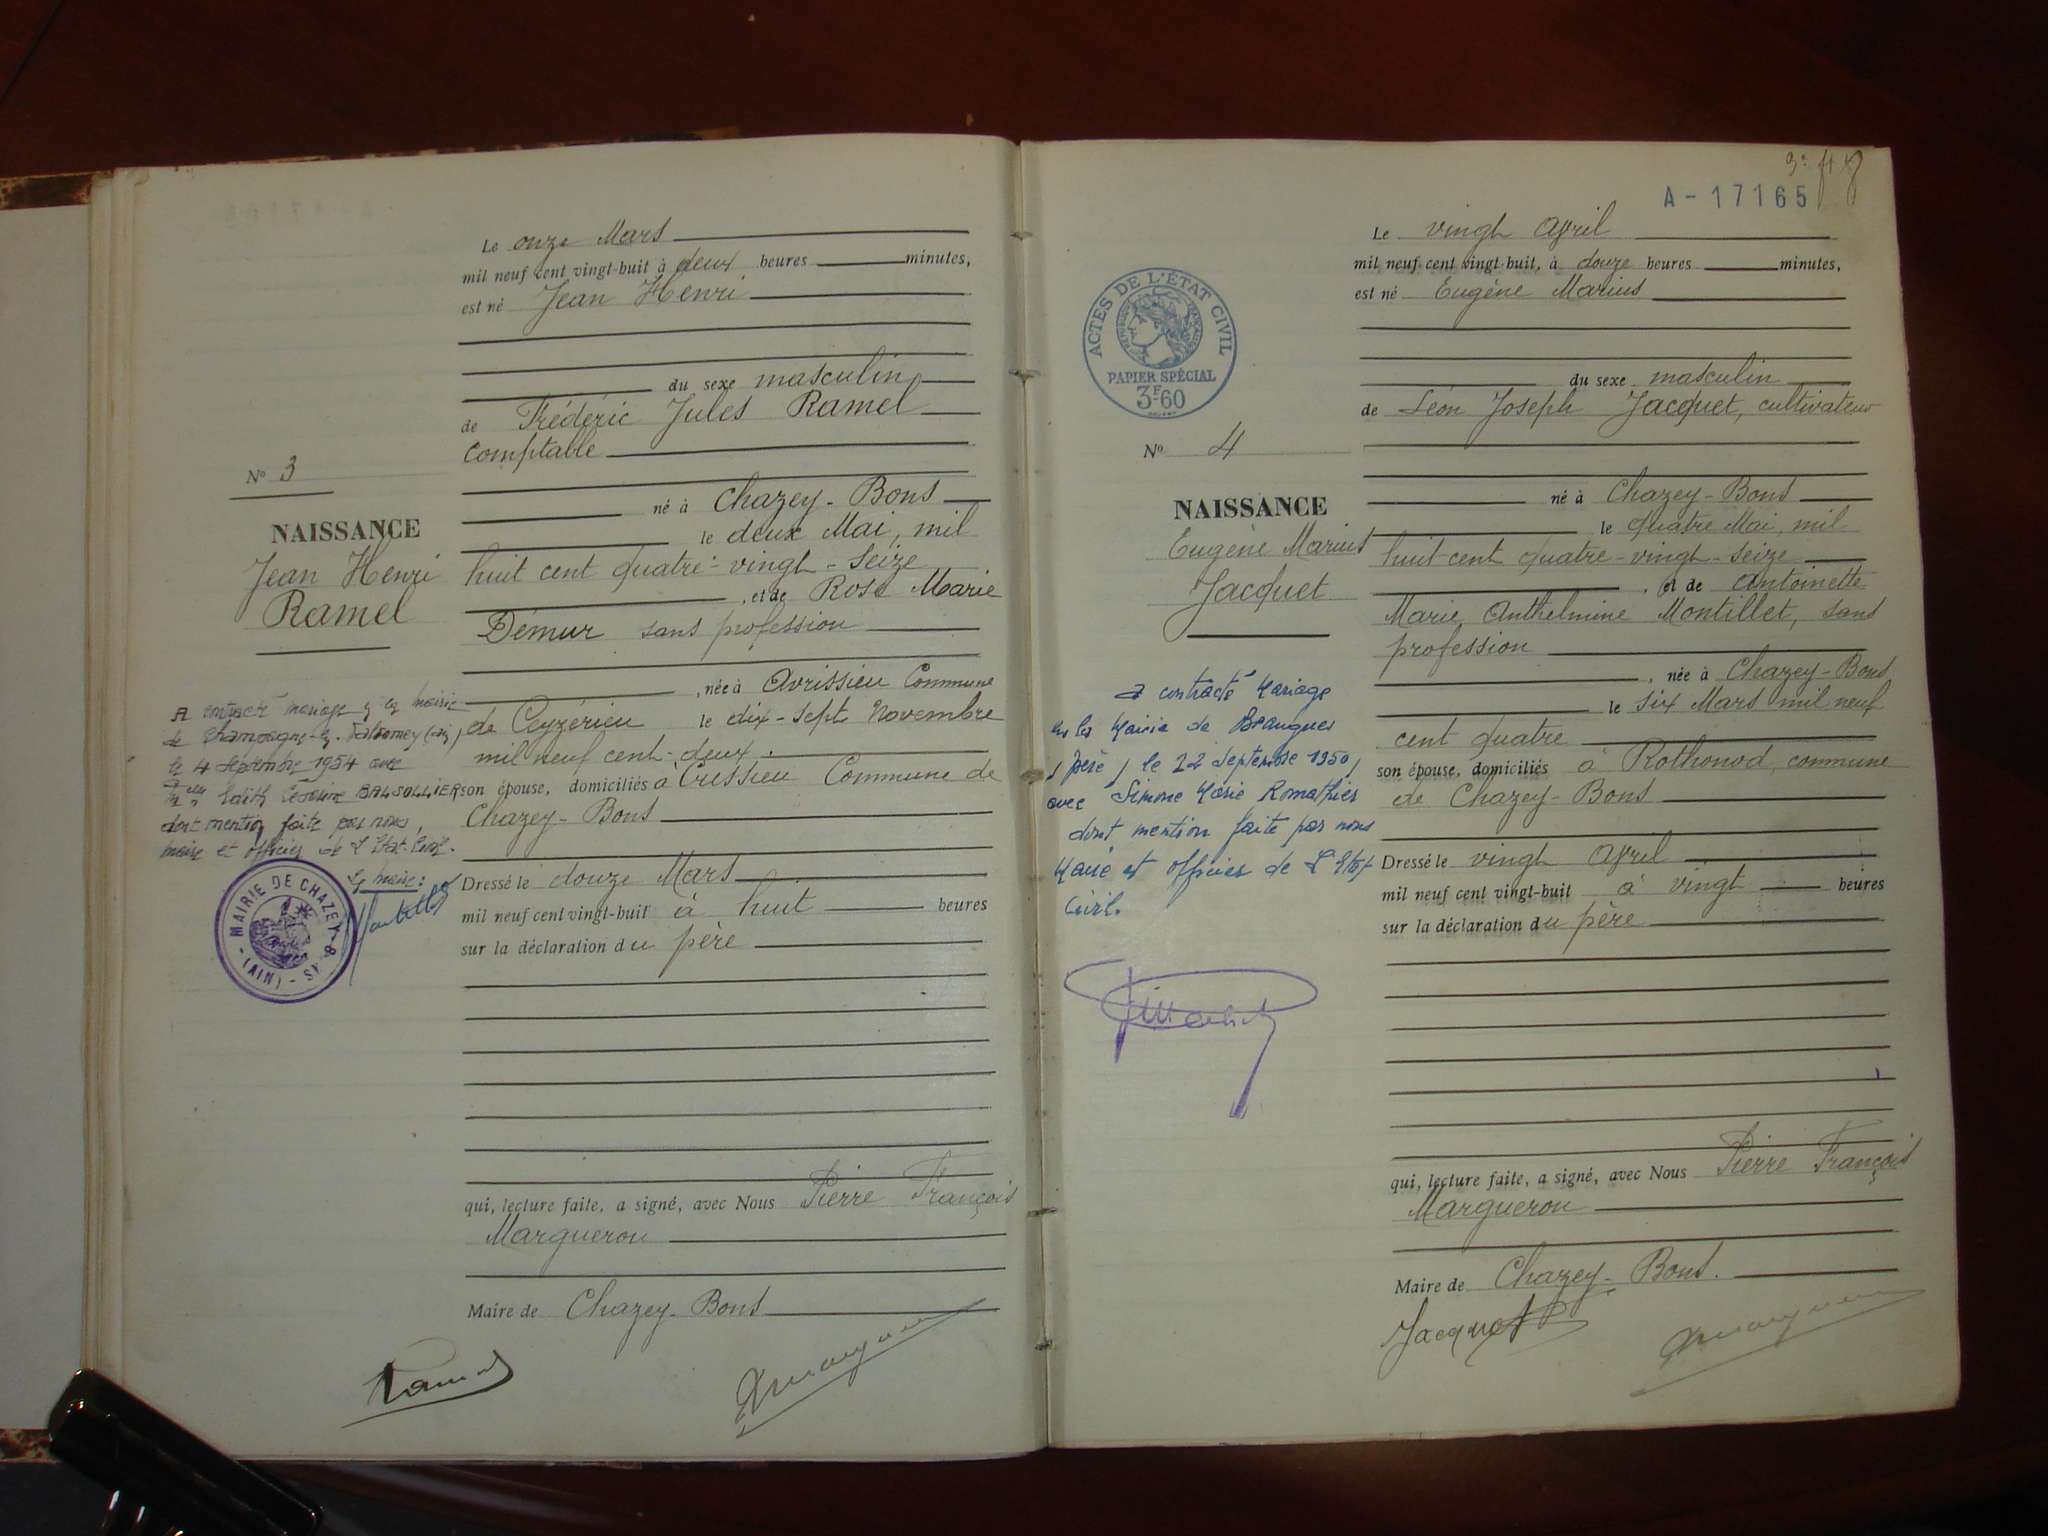 Le onze Mars
mil neuf cent vingt-huit à deux heures minutes,
est né Jean Henri
du sexe masculin
de Frédéric Jules Ramel
Comptable
né à Chazey-Bons
le deux Mai, mil
huit cent quatre-vingt-seize
, et de Rose Marie
Démur sans profession
, née à Avrissieu Commune
de Ceyzérieu le dix-sept Novembre
mil neuf cent-deux.
son épouse, domiciliés à Cressieu Commune de
Chazey-Bons
Dressé le douze Mars
mil neuf cent vingt-huit à huit heures
sur la déclaration du père
qui, lecture faite, a signé, avec Nous Pierre François
Margueron
Maire de Chazey-Bons
Ramel
No 3
NAISSANCE
Jean Henri
Ramel
A contracté mariage à la mairie
de Champagne-en-Valromey (Ain),
le 4 Septembre 1954 avec
Melle Edith BALSOLLIER
dont mention faite par nous,
maire et officier de l'Etat-Civil.
Le maire:
MAIRIE DE CHAZEY-BONS
(AIN)
A-17165
Le vingt Avril
mil neuf cent vingt-huit, à douze heures minutes,
est né Eugène Marius
du sexe masculin
de Léon Joseph Jacquet, cultivateur
né à Chazey-Bons
le quatre Mai, mil
huit cent quatre-vingt-seize
, et de Antoinette
Marie Anthelmine Montillet, sans
profession
, née à Chazey-Bons
le six Mars mil neuf
cent quatre
son épouse, domiciliés à Rothonod, commune
de Chazey-Bons
Dressé le vingt Avril
mil neuf cent vingt-huit à vingt heures
sur la déclaration du père
qui, lecture faite, a signé, avec Nous Pierre François
Margueron
Maire de Chazey-Bons.
Jacquet
ACTES DE L'ÉTAT CIVIL
RÉPUBLIQUE FRANÇAISE
PAPIER SPÉCIAL
3F.60
No 4
NAISSANCE
Eugène Marius
Jacquet
a contracté Mariage
en la Mairie de Brangues
(Isère) le 22 Septembre 1950,
avec Simone Marie Romathier
dont mention faite par nous
Maire et officier de l'Etat
Civil.